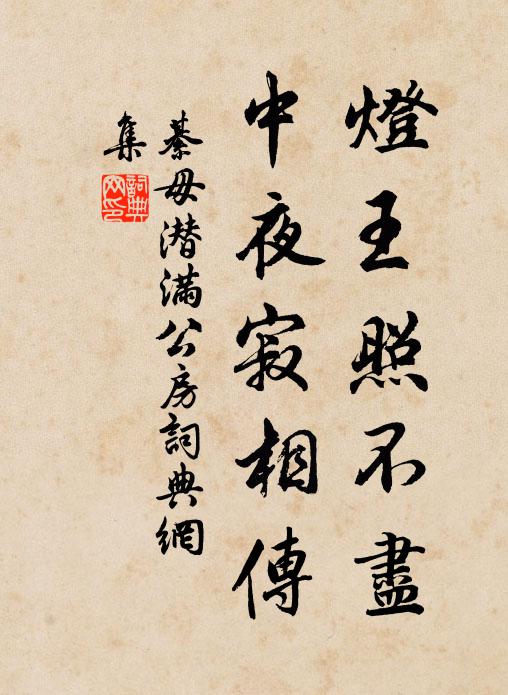 燈王照不盡
中夜寂相傳
綦毋潛滿公房詞典網
集
詞典
网印